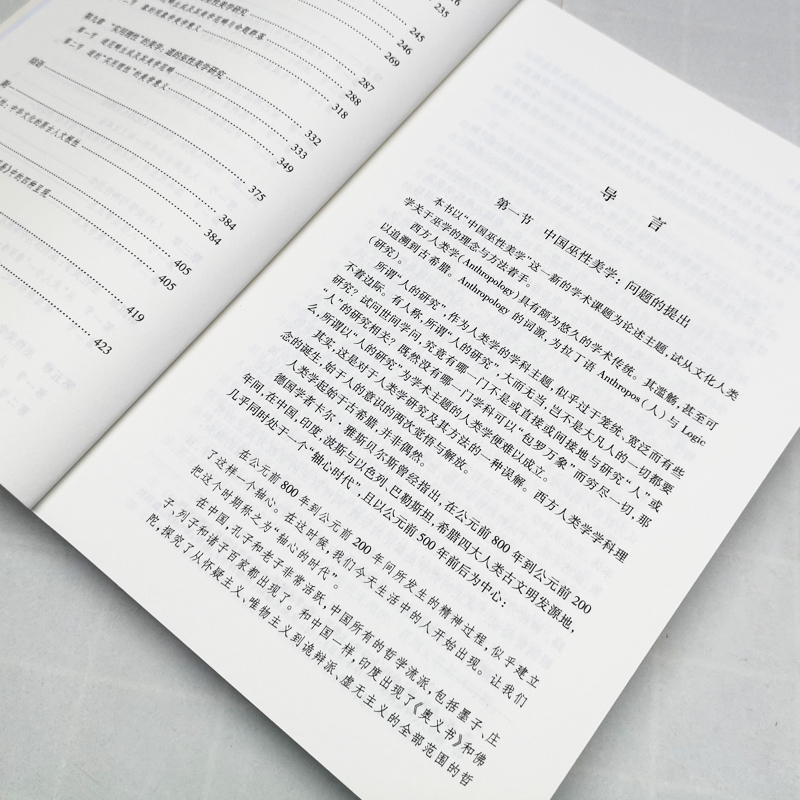 性美学研究
235
245
246
269
第九章 “实用理性”的美学:道的巫性美学研究
287
288
第二节 道的“实用理性”的美学意义
318
结语
332
附
349
中华文化的原古人文根性
375
中的四种呈现
384
384
405
405
419
423
导 言
第一节 中国巫性美学:问题的提出
本书以“中国巫性美学”这一新的学术课题为论述主题,试从文化人类
学关于巫学的理念与方法着手。
西方人类学(Anthropology)具有颇为悠久的学术传统。其滥觞,甚至可
以追溯到古希腊。Anthropology 的词源,为拉丁语 Anthropos(人)与 Logic
(研究)。
所谓“人的研究”,作为人类学的学科主题,似乎过于笼统、宽泛而有些
不着边际。有人称,所谓“人的研究”,大而无当,岂不是大凡人的一切都要
研究?试问世间学问,究竟有哪一门不是或直接或间接地与研究“人”或
人”的研究相关?既然没有哪一门学科可以“包罗万象”而穷尽一切,那
么,所谓以“人的研究”为学术主题的人类学便难以成立。
其实,这是对于人类学研究及其方法的一种误解。西方人类学学科理
念的诞生,始于人的意识的两次觉悟与解放。
人类学起始于古希腊,并非偶然。
德国学者卡尔·雅斯贝尔斯曾经指出,在公元前 800 年到公元前 200
年间,在中国,印度,波斯与以色列、巴勒斯坦,希腊四大人类古文明发源地,
几乎同时处于一个“轴心时代”,且以公元前 500 年前后为中心:
在公元前 800 年到公元前 200 年间所发生的精神过程,似乎建立
了这样一个轴心。在这时候,我们今天生活中的人开始出现。让我们
把这个时期称之为“轴心的时代”。
在中国,孔子和老子非常活跃,中国所有的哲学流派,包括墨子、庄
子、列子和诸子百家都出现了。和中国一样,印度出现了《奥义书》和佛
陀,探究了从怀疑主义、唯物主义到诡辩派、虚无主义的全部范围的哲